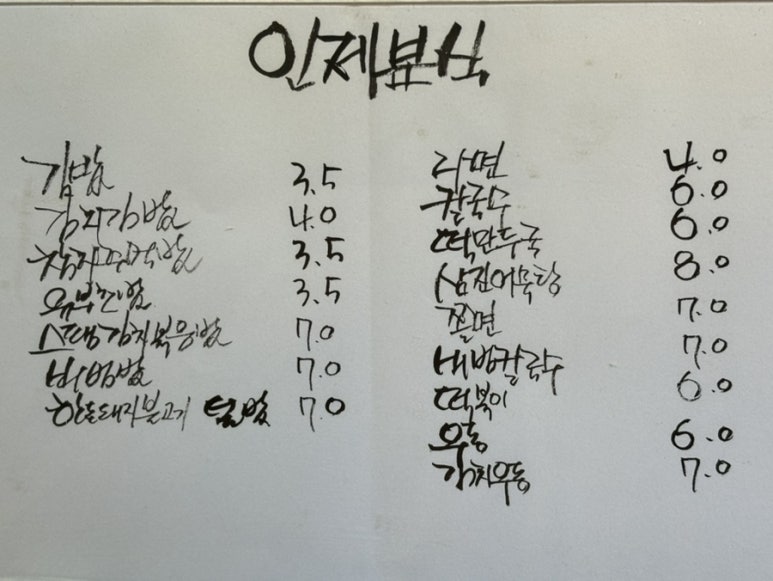 인제분식
김밥 3.5
참치김밥 4.0
참치주먹밥 3.5
유부초밥 3.5
스팸김치볶음밥 7.0
비빔밥 7.0
한돈돼지불고기 덮밥 7.0
라면 4.0
칼국수 6.0
떡만두국 6.0
삼진어묵탕 8.0
쫄면 7.0
비빔칼국수 7.0
떡볶이 6.0
우동 6.0
김치우동 7.0